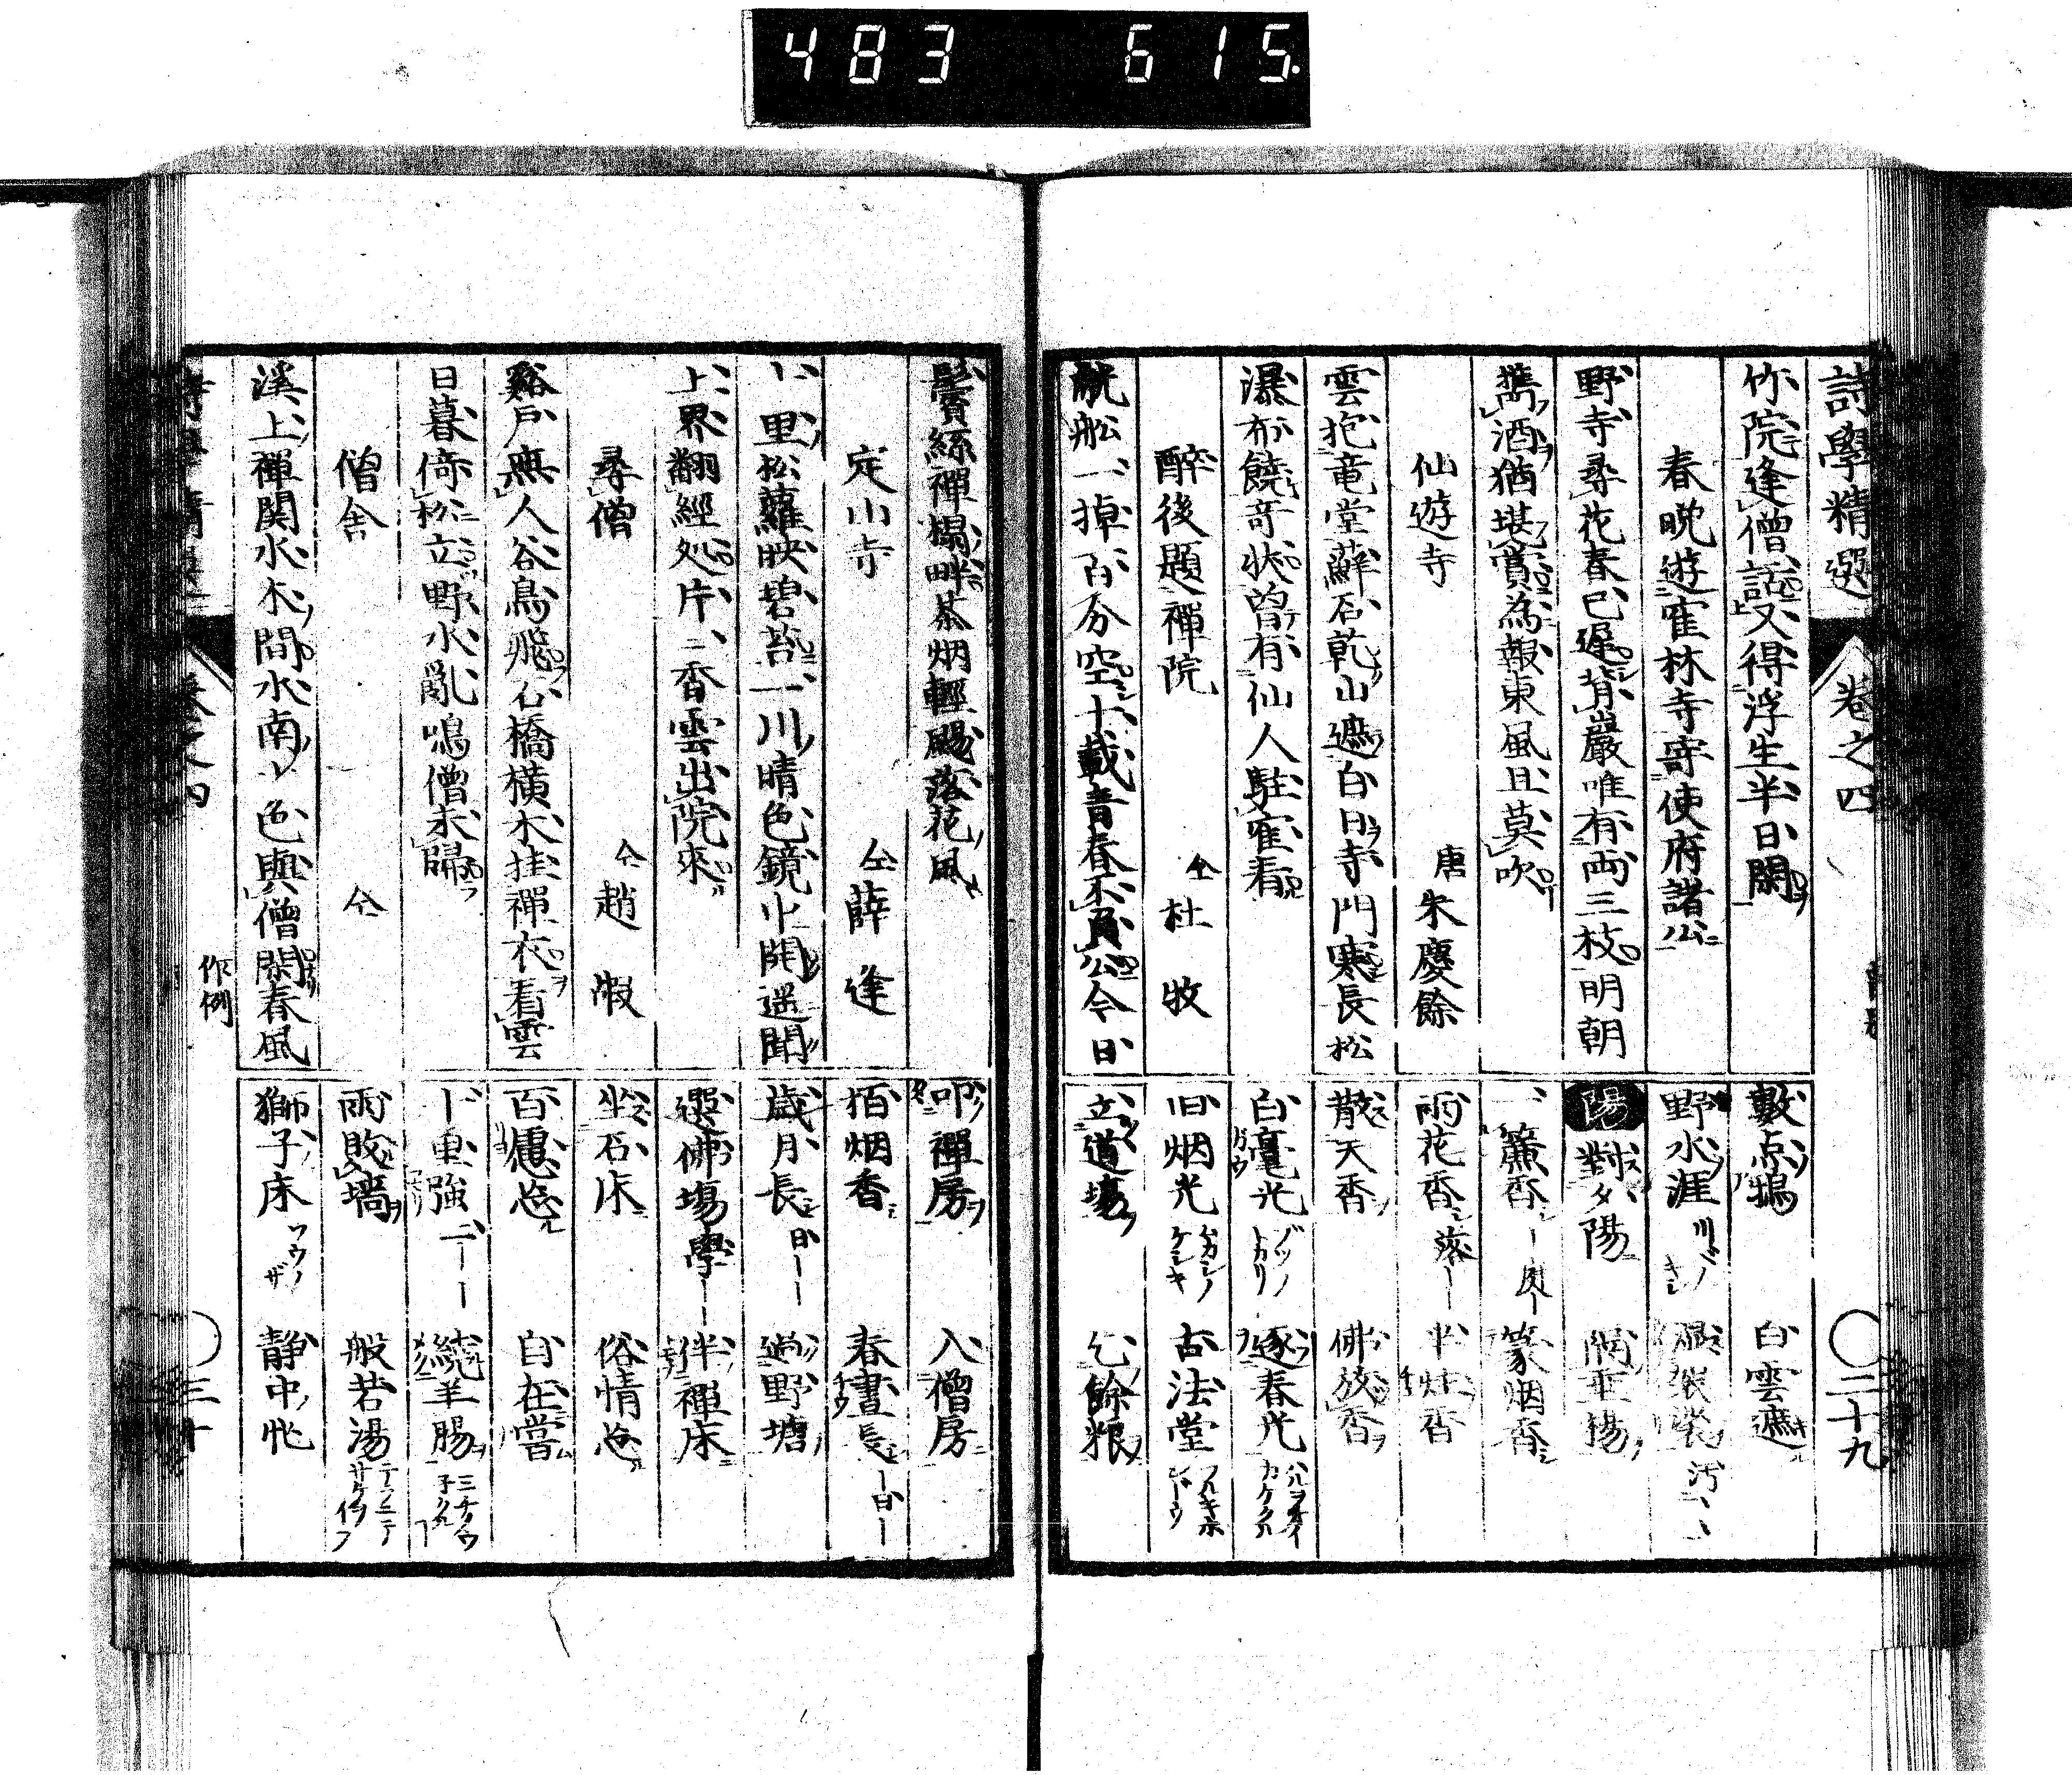 483 615.
詩學精選 卷之四 二十九
竹院逢僧話又得浮生半日閑
春晚遊寉林寺寄使府諸公
野寺尋花春已遲背巖唯有兩三枝明朝
攜酒猶堪賞為報東風且莫吹
仙遊寺 唐 朱慶餘
雲抱竜堂蘚石乾山遮白日寺門寒長松
瀑布饒竒狀曽有仙人駐寉看
醉後題禪院 仝 杜牧
觥舩一掉百分空十載青春不負公今日
數点鴉 白雲遮
野水涯
陽 對夕陽
簾香 篆烟香
雨花香 半炷香
散天香 佛放香
白毫光 逐春光
旧烟光 ムカシノケシキ 古法堂
立道場 乞餘粮
鬢絲禪榻畔茶烟輕颺落花風
定山寺 仝 薛逢
十里松蘿映碧苔一川晴色鏡中開遥聞
上界翻經処片〻香雲出院來
尋僧 仝 趙嘏
谿戶無人谷鳥飛石橋橫木挂禪衣看雲
日暮倚松立野水亂鳴僧未歸
僧舍 仝
溪上禪関水木間水南山色與僧閑春風
叩禪房 入僧房
栢烟香 春晝長
歳月長 過野塘
選佛場 伴禪床
坐石床 俗情忘
百慮忘 自在嘗
繞羊腸
雨敗墻 般若湯
獅子床 静中忙
作例
卷之四 三十